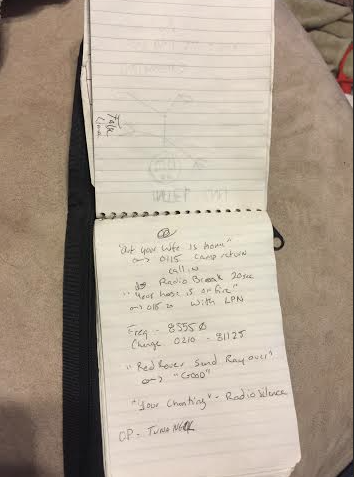 Talk
Lima
"but your Wife is home"
→ 0115 camp return
call in
Radio Break 20sec
"Your hose is on fire"
→ 0120 With LPN
Freq - 83550
Change 0210 - 81125
"Red Rover Send Ray over"
→ "GOOD"
"Your Cheating" - Radio Silence
OP -